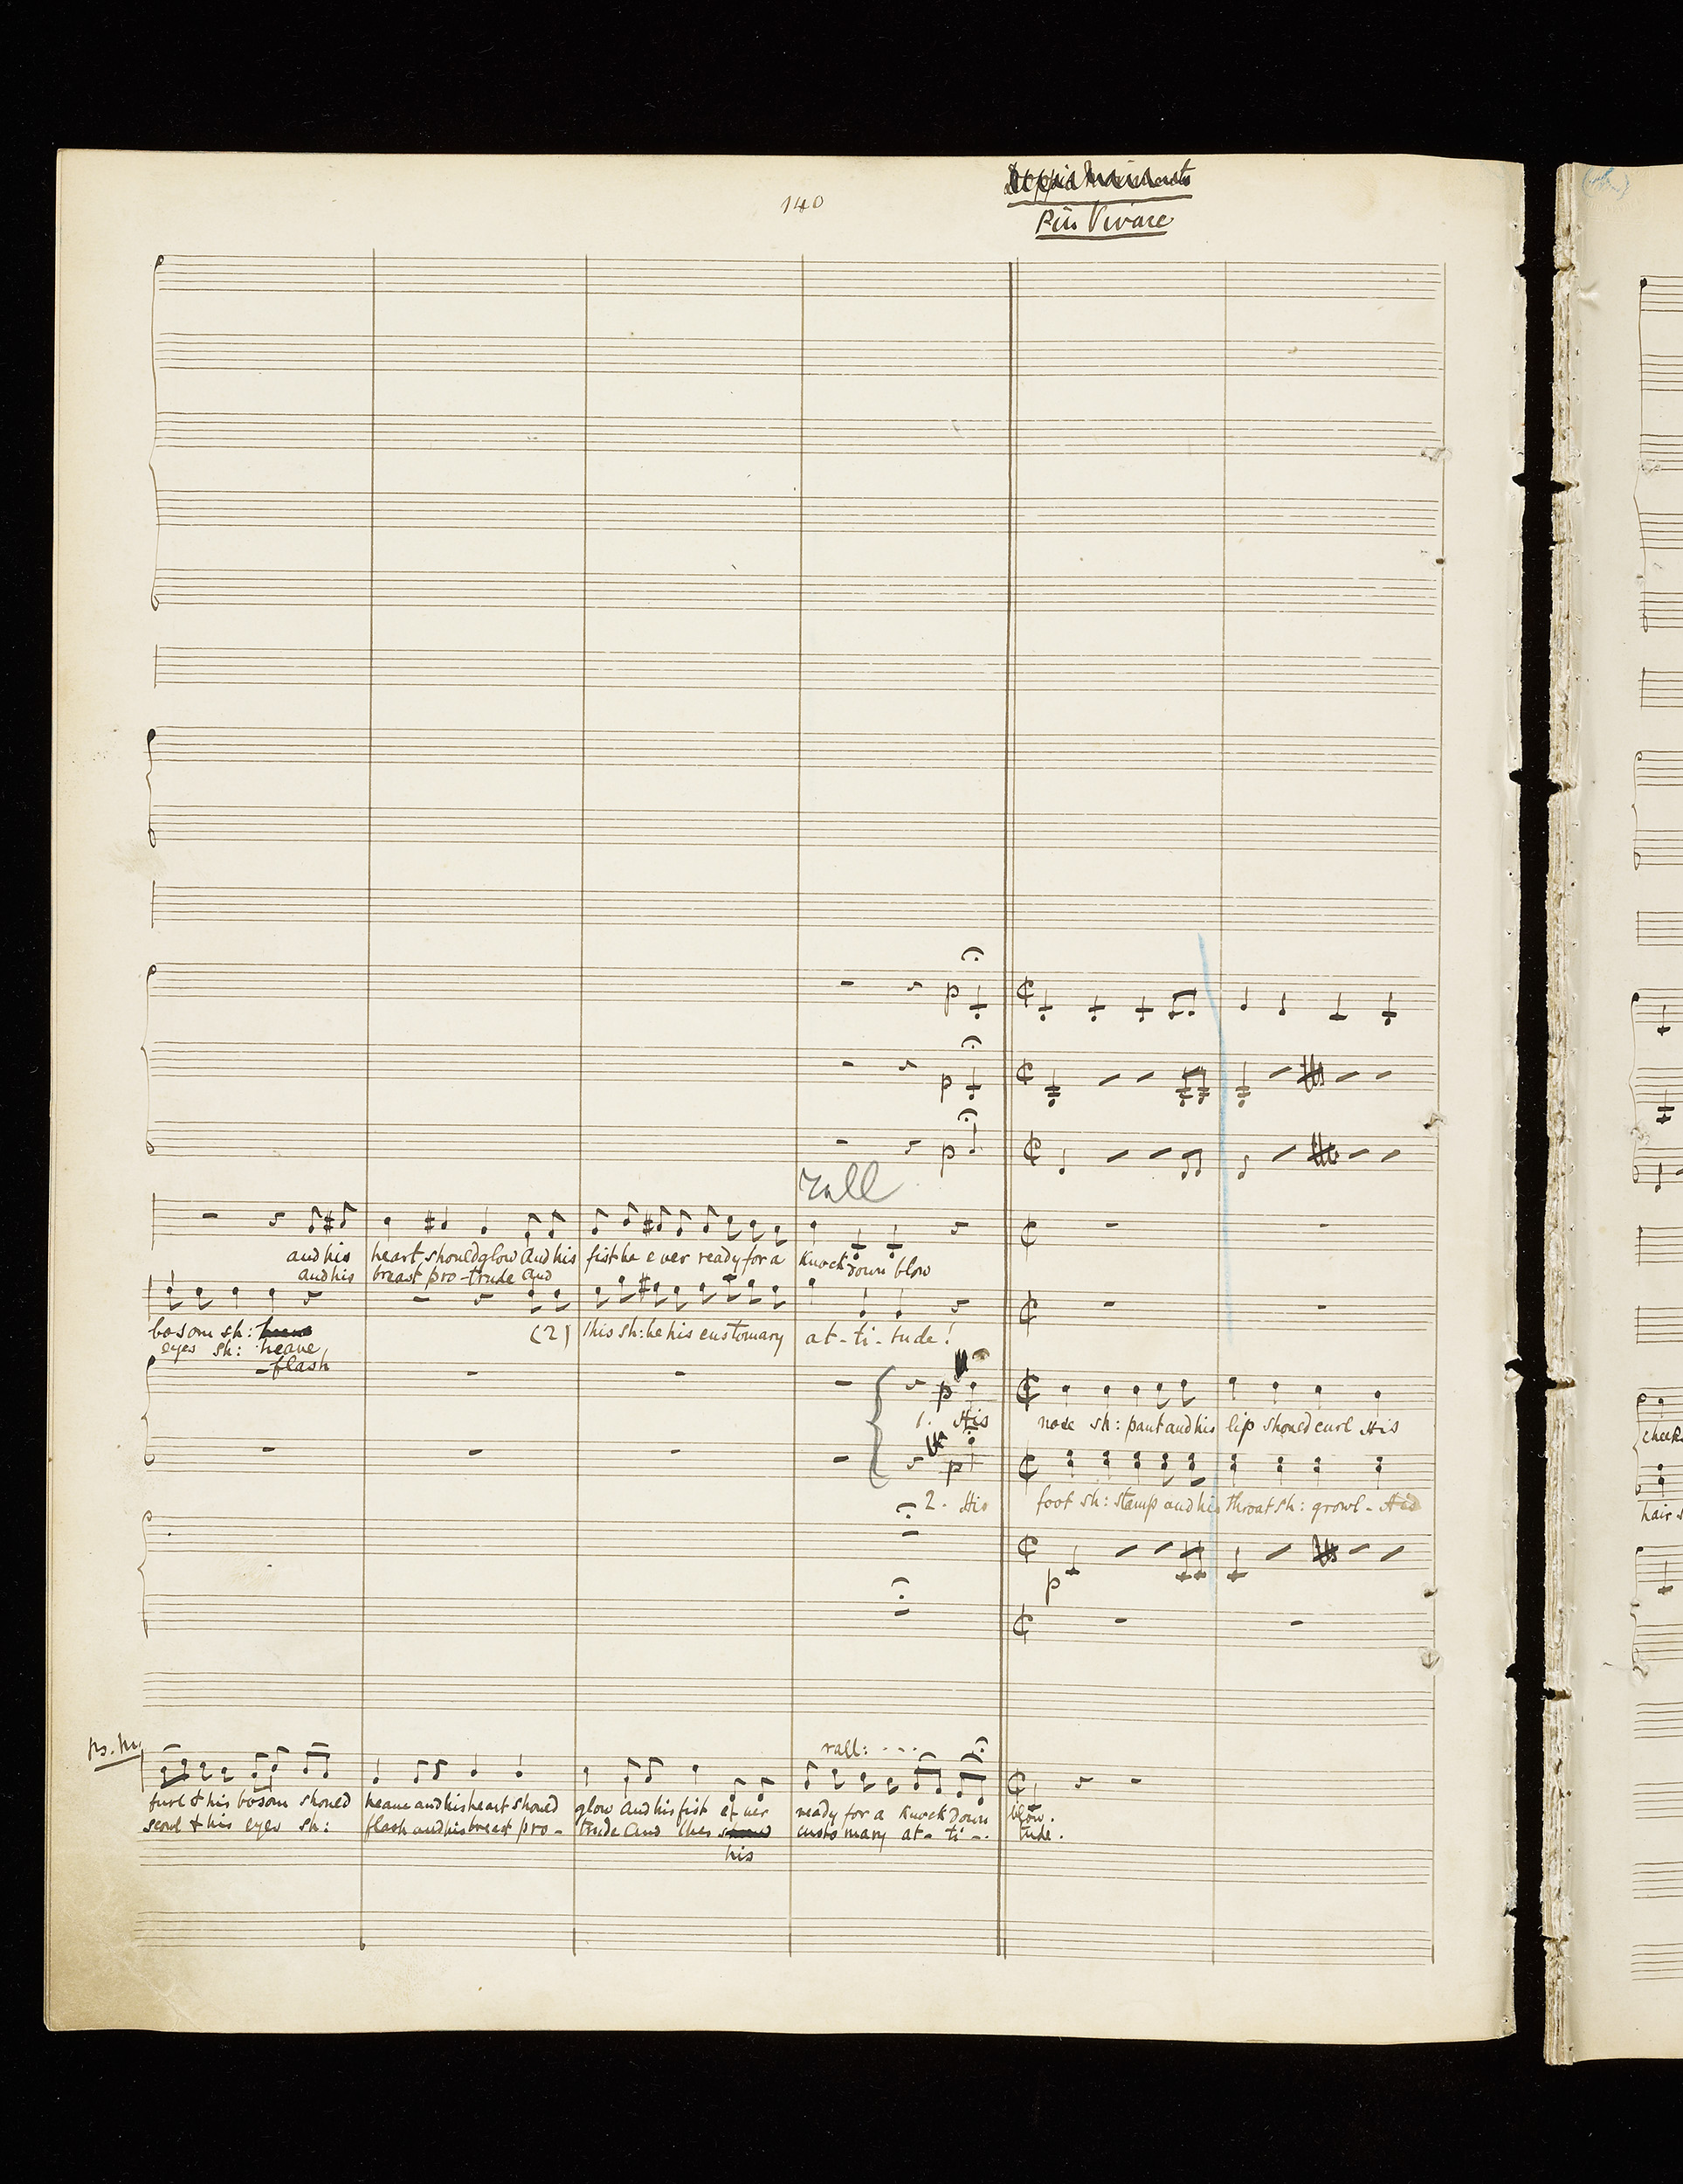 140
Più Vivace
p
p
p
rall
and his heart should glow and his fist be ever ready for a knock down blow
and his breast pro-trude and
bosom sh: heave
(2) this sh: be his customary at-ti-tude!
eyes sh:
-flash
p
1. His nose sh: pant and his lip should curl His
p
2. His foot sh: stamp and his throat sh: growl - His
p
rall: . . . .
furl & his bosom should heave and his heart should glow and his fist e-ver ready for a knock down blow.
scowl & his eyes sh: flash and his breast pro-trude and this customary at-ti-. tude.
his
cheek
hair s